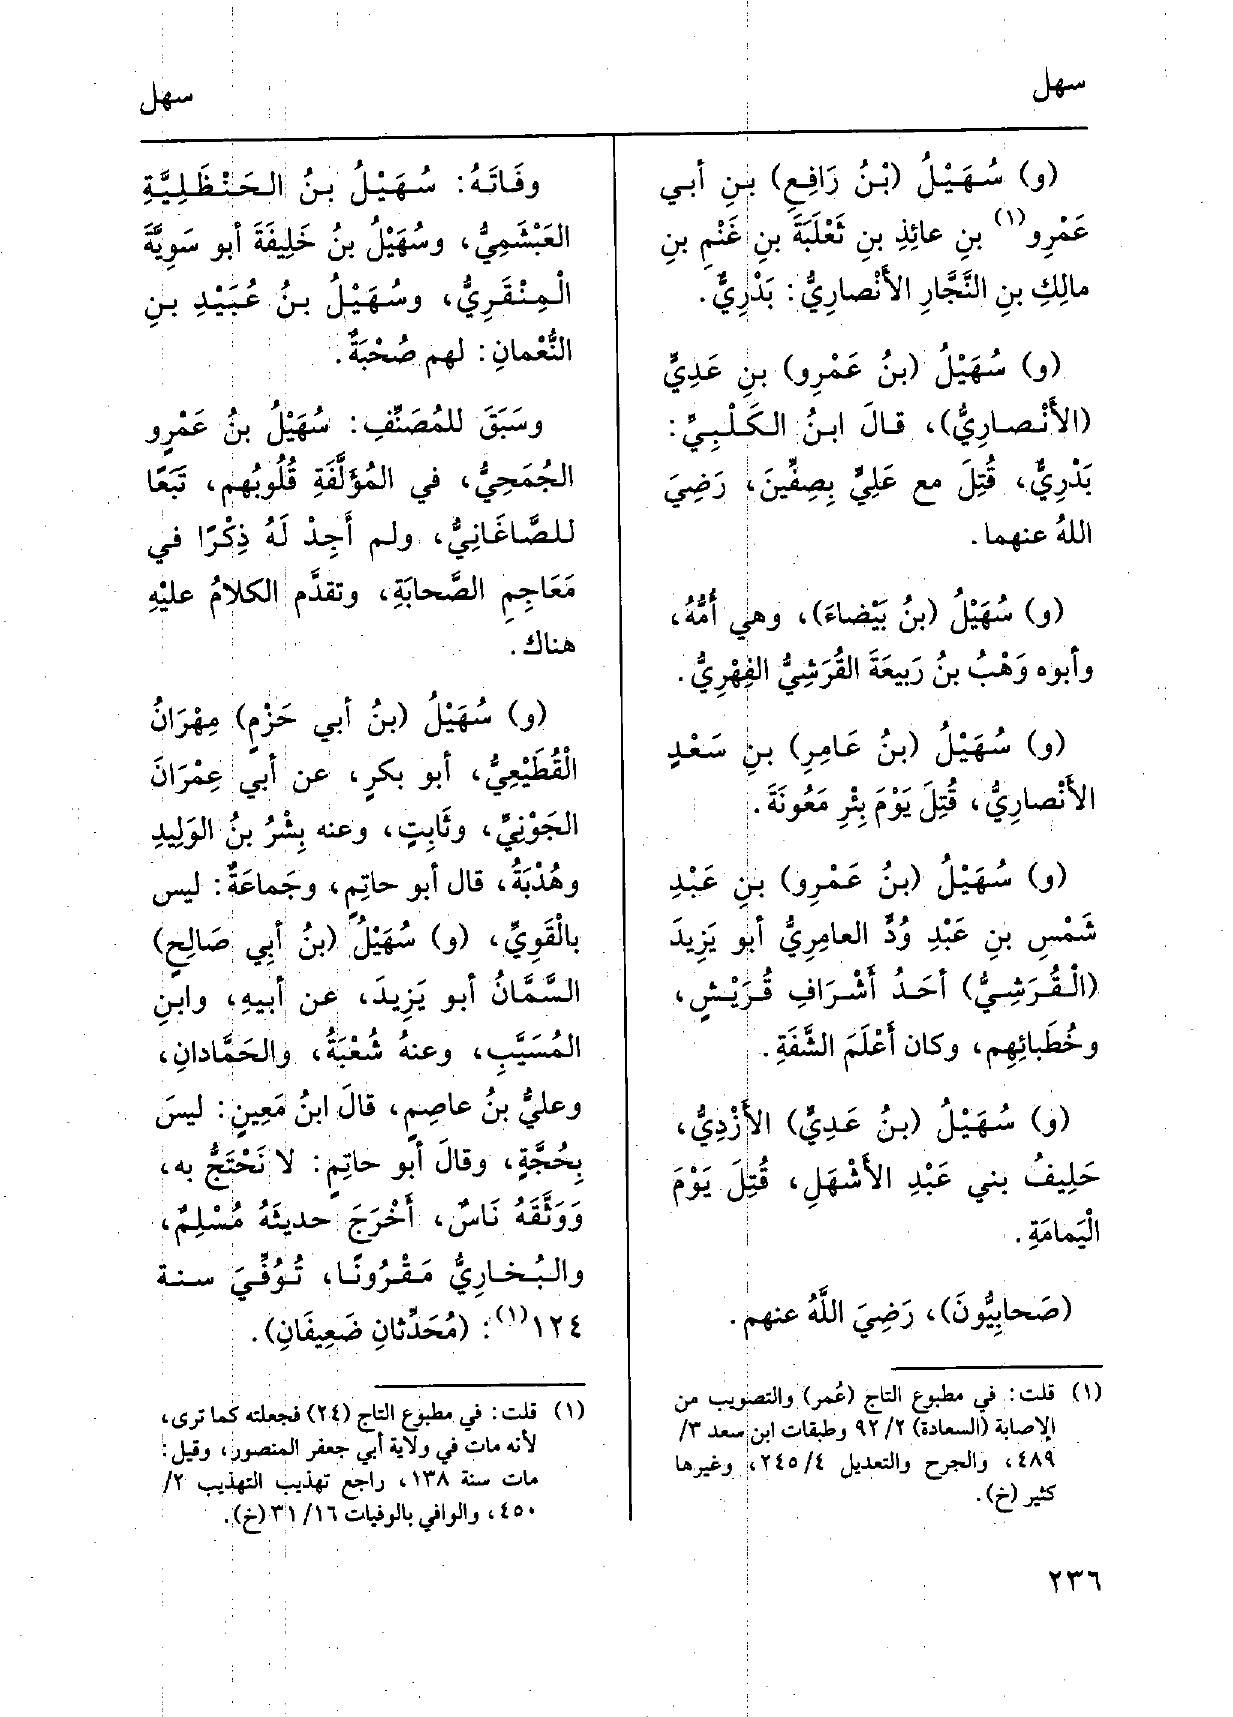 سهل
سهل
(و) سُهَيْلُ (بْنُ رَافِعٍ) بنِ أبي
عَمْرِو(١) بنِ عائِذِ بنِ ثَعْلَبَةَ بنِ غَنْمِ بنِ
مالِكِ بنِ النَّجَّارِ الأَنْصارِيُّ: بَدْرِيٌّ.
(و) سُهَيْلُ (بنُ عَمْرِو) بنِ عَدِيٍّ
(الأَنْصارِيُّ)، قالَ ابنُ الكَلْبِيِّ:
بَدْرِيٌّ، قُتِلَ مع عَلِيٍّ بِصِفِّينَ، رَضِيَ
اللهُ عنهما.
(و) سُهَيْلُ (بنُ بَيْضاءَ)، وهي أُمُّهُ،
وأبوه وَهْبُ بنُ رَبيعَةَ القُرَشِيُّ الفِهْرِيُّ.
(و) سُهَيْلُ (بنُ عَامِرِ) بنِ سَعْدٍ
الأَنْصارِيُّ، قُتِلَ يَوْمَ بِئْرِ مَعُونَةَ.
(و) سُهَيْلُ (بنُ عَمْرِو) بنِ عَبْدِ
شَمْسِ بنِ عَبْدِ وُدٍّ العامِرِيُّ أبو يَزِيدَ
(الْقُرَشِيُّ) أحَدُ أَشْرَافِ قُرَيْشٍ،
وخُطَبائِهِم، وكان أَعْلَمَ الشَّفَةِ.
(و) سُهَيْلُ (بنُ عَدِيٍّ) الأَزْدِيُّ،
حَلِيفُ بني عَبْدِ الأَشْهَلِ، قُتِلَ يَوْمَ
الْيَمامَةِ.
(صَحابِيُّونَ)، رَضِيَ اللَّهُ عنهم.
(١) قلت: في مطبوع التاج (عُمر) والتصويب من
الإصابة (السعادة) ٢/ ٩٢ وطبقات ابن سعد ٣/
٤٨٩، والجرح والتعديل ٤/ ٢٤٥، وغيرها
كثير (خ).
وفَاتَهُ: سُهَيْلُ بنُ الحَنْظَلِيَّةِ
العَبْشَمِيُّ، وسُهَيْلُ بنُ خَلِيفَةَ أبو سَوِيَّةَ
الْمِنْقَرِيُّ، وسُهَيْلُ بنُ عُبَيْدِ بنِ
النُّعْمانِ: لهم صُحْبَةٌ.
وسَبَقَ للمُصَنِّفِ: سُهَيْلُ بنُ عَمْرٍو
الجُمَحِيُّ، في المُؤَلَّفَةِ قُلُوبُهم، تَبَعًا
للصَّاغَانِيُّ، ولم أَجِدْ لَهُ ذِكْرًا في
مَعَاجِمِ الصَّحابَةِ، وتقدَّم الكلامُ عليْهِ
هناك.
(و) سُهَيْلُ (بنُ أبي حَزْمٍ) مِهْرَانُ
الْقُطَيْعِيُّ، أبو بكرٍ، عن أبي عِمْرَانَ
الجَوْنِيِّ، وثَابِتٍ، وعنه بِشْرُ بنُ الوَلِيدِ
وهُدْبَةُ، قال أبو حاتِمٍ، وجَماعَةٌ: ليس
بالْقَوِيِّ، (و) سُهَيْلُ (بنُ أبِي صَالِحٍ)
السَّمَّانُ أبو يَزِيدَ، عن أبيهِ، وابنِ
المُسَيَّبِ، وعنهُ شُعْبَةُ، والحَمَّادانِ،
وعليُّ بنُ عاصِمٍ، قالَ ابنُ مَعِينٍ: ليسَ
بِحُجَّةٍ، وقالَ أبو حاتِمٍ: لا نَحْتَجُّ به،
وَوَثَّقَهُ نَاسٌ، أَخْرَجَ حديثَهُ مُسْلِمٌ،
والبُخارِيُّ مَقْرُونًا، تُوُفِّيَ سنة
١٢٤(١): (مُحَدِّثانِ ضَعِيفَانِ).
(١) قلت: في مطبوع التاج (٢٤) فجعلته كما ترى،
لأنه مات في ولاية أبي جعفر المنصور، وقيل:
مات سنة ١٣٨، راجع تهذيب التهذيب ٢/
٤٥٠، والوافي بالوفيات ١٦/ ٣١ (خ).
٢٣٦